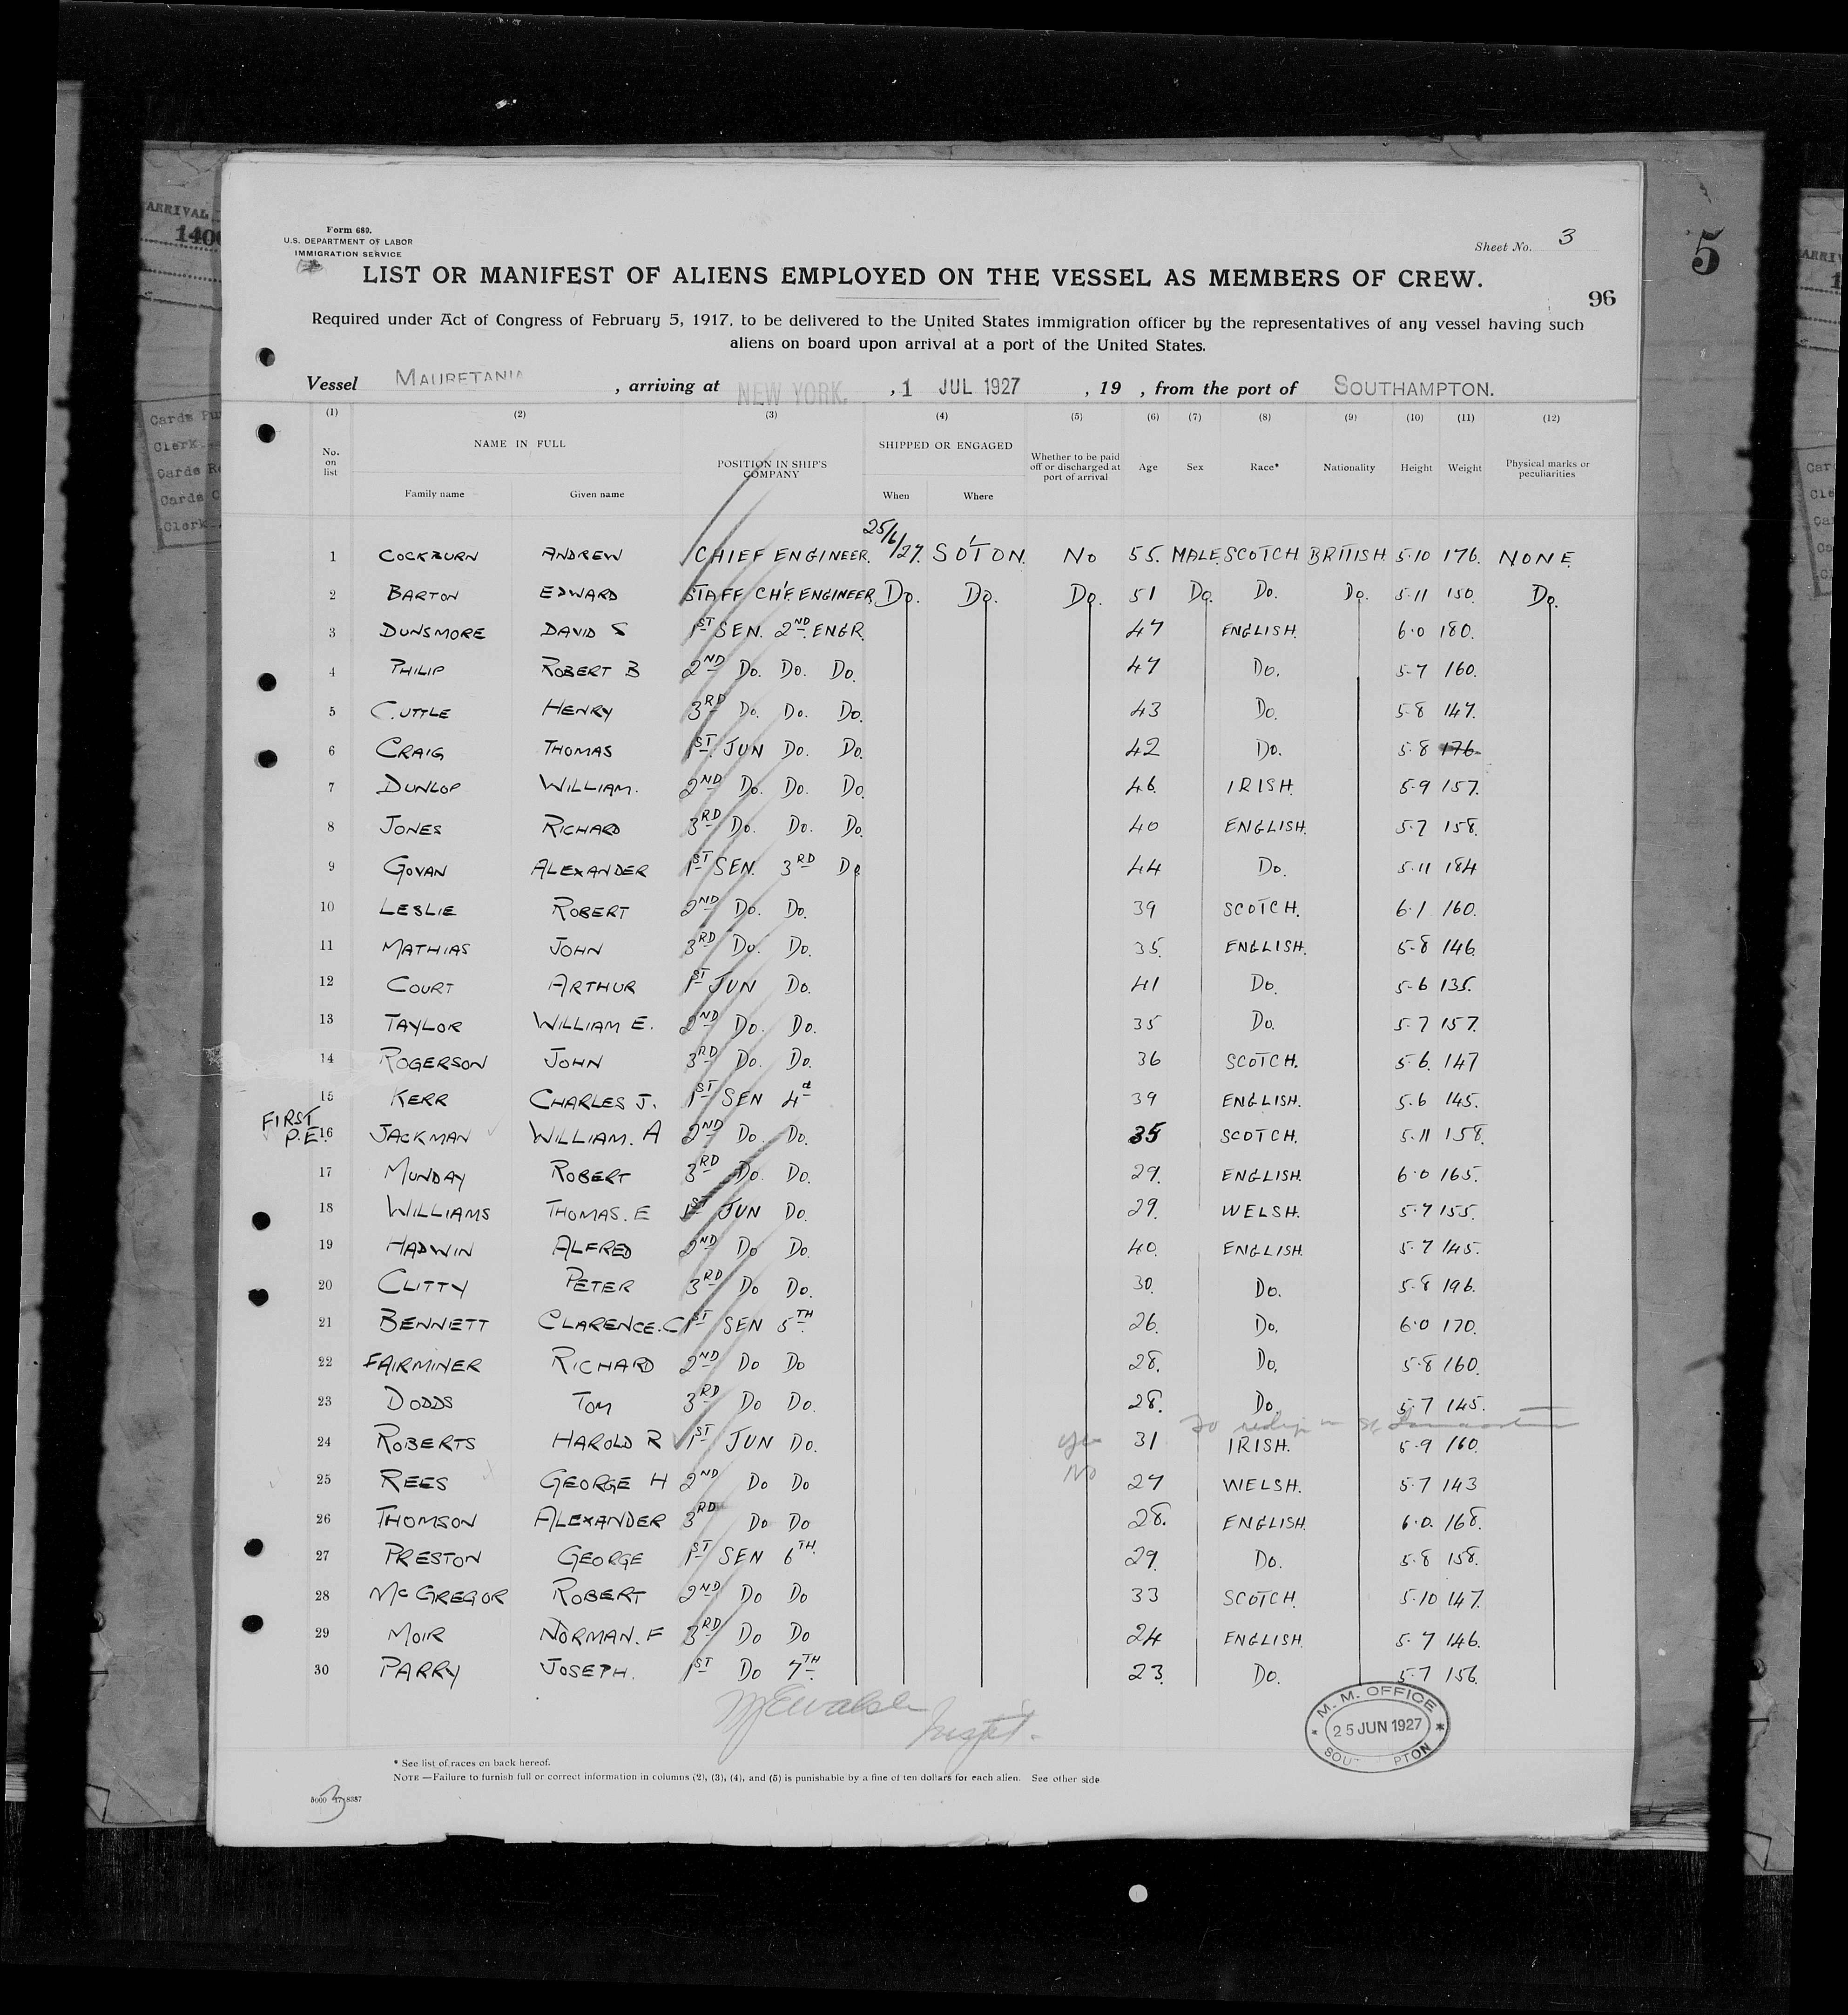 ARRIVAL
140
Cards Pu
Clerk
Cards Re
Cards C
Clerk
Form 689.
U.S. DEPARTMENT OF LABOR
IMMIGRATION SERVICE
Sheet No. 3
5
LIST OR MANIFEST OF ALIENS EMPLOYED ON THE VESSEL AS MEMBERS OF CREW.
96
Required under Act of Congress of February 5, 1917, to be delivered to the United States immigration officer by the representatives of any vessel having such
aliens on board upon arrival at a port of the United States.
Vessel MAURETANIA , arriving at NEW YORK. , 1 JUL 1927 , 19 , from the port of SOUTHAMPTON.
(1) (2) (3) (4) (5) (6) (7) (8) (9) (10) (11) (12)
No. on list NAME IN FULL Family name Given name POSITION IN SHIP'S COMPANY SHIPPED OR ENGAGED When Where Whether to be paid off or discharged at port of arrival Age Sex Race* Nationality Height Weight Physical marks or peculiarities
1 COCKBURN ANDREW CHIEF ENGINEER. 25/6/27. SO'TON. NO 55. MALE. SCOTCH BRITISH. 5.10 176. NONE
2 BARTON EDWARD STAFF CH'F. ENGINEER. DO. DO. DO. 51 DO. DO. DO. 5.11 150. DO.
3 DUNSMORE DAVID S 1ST SEN. 2ND ENGR. 47 ENGLISH. 6.0 180.
4 PHILIP ROBERT B 2ND DO. DO. DO. 47 DO. 5.7 160.
5 CUTTLE HENRY 3RD DO. DO. DO. 43 DO. 5.8 147.
6 CRAIG THOMAS 1ST JUN DO. DO. 42 DO. 5.8 176.
7 DUNLOP WILLIAM. 2ND DO. DO. DO. 46. IRISH. 5.9 157.
8 JONES RICHARD 3RD DO. DO. DO. 40 ENGLISH. 5.7 158.
9 GOVAN ALEXANDER 1ST SEN. 3RD DO 44 DO. 5.11 184
10 LESLIE ROBERT 2ND DO. DO. 39 SCOTCH. 6.1 160.
11 MATHIAS JOHN 3RD DO. DO. 35. ENGLISH. 5.8 146.
12 COURT ARTHUR 1ST JUN DO. 41 DO. 5.6 135.
13 TAYLOR WILLIAM E. 2ND DO. DO. 35 DO. 5.7 157.
14 ROGERSON JOHN 3RD DO. DO. 36 SCOTCH. 5.6. 147
15 KERR CHARLES J. 1ST SEN 4 39 ENGLISH. 5.6 145.
FIRST P.E. 16 JACKMAN WILLIAM. A 2ND DO. DO. 35 SCOTCH. 5.11 158.
17 MUNDAY ROBERT 3RD DO. DO. 29. ENGLISH. 6.0 165.
18 WILLIAMS THOMAS. E 1ST JUN DO. 29. WELSH. 5.7 155.
19 HADWIN ALFRED 2ND DO DO. 40. ENGLISH. 5.7 145.
20 CLITTY PETER 3RD DO DO. 30. DO. 5.8 196.
21 BENNETT CLARENCE. C 1ST SEN 5TH 26. DO. 6.0 170.
22 FAIRMINER RICHARD 2ND DO DO 28. DO. 5.8 160.
23 DODDS TOM 3RD DO DO. 28. DO. 5.7 145.
24 ROBERTS HAROLD R 1ST JUN DO. yes 31 IRISH. 5.9 160.
25 REES GEORGE H 2ND DO DO No 27 WELSH. 5.7 143
26 THOMSON ALEXANDER 3RD DO DO 28. ENGLISH. 6.0. 168.
27 PRESTON GEORGE 1ST SEN 6TH. 29. DO. 5.8 158.
28 MCGREGOR ROBERT 2ND DO DO 33 SCOTCH. 5.10 147.
29 MOIR NORMAN. F 3RD DO DO 24 ENGLISH. 5.7 146.
30 PARRY JOSEPH. 1ST DO 7TH 23. DO. 5.7 156.
M. M. OFFICE
25 JUN 1927
SOU PTON
* See list of races on back hereof.
NOTE —Failure to furnish full or correct information in columns (2), (3), (4), and (5) is punishable by a fine of ten dollars for each alien. See other side
3